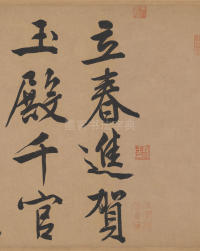 立春進賀
玉殿千官